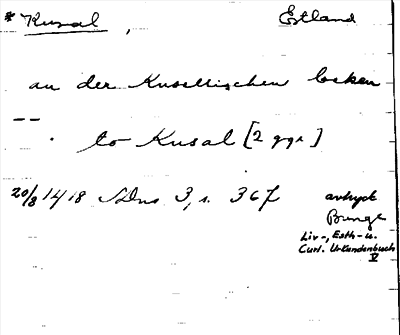 * Kusal, Estland
an der Kusellischen beken
--
to Kusal [2 ggr]
20/8 1418 3, s. 367 avtryck
Bunge
Liv-, Esth- u.
Curl. Urkundenbuch
V